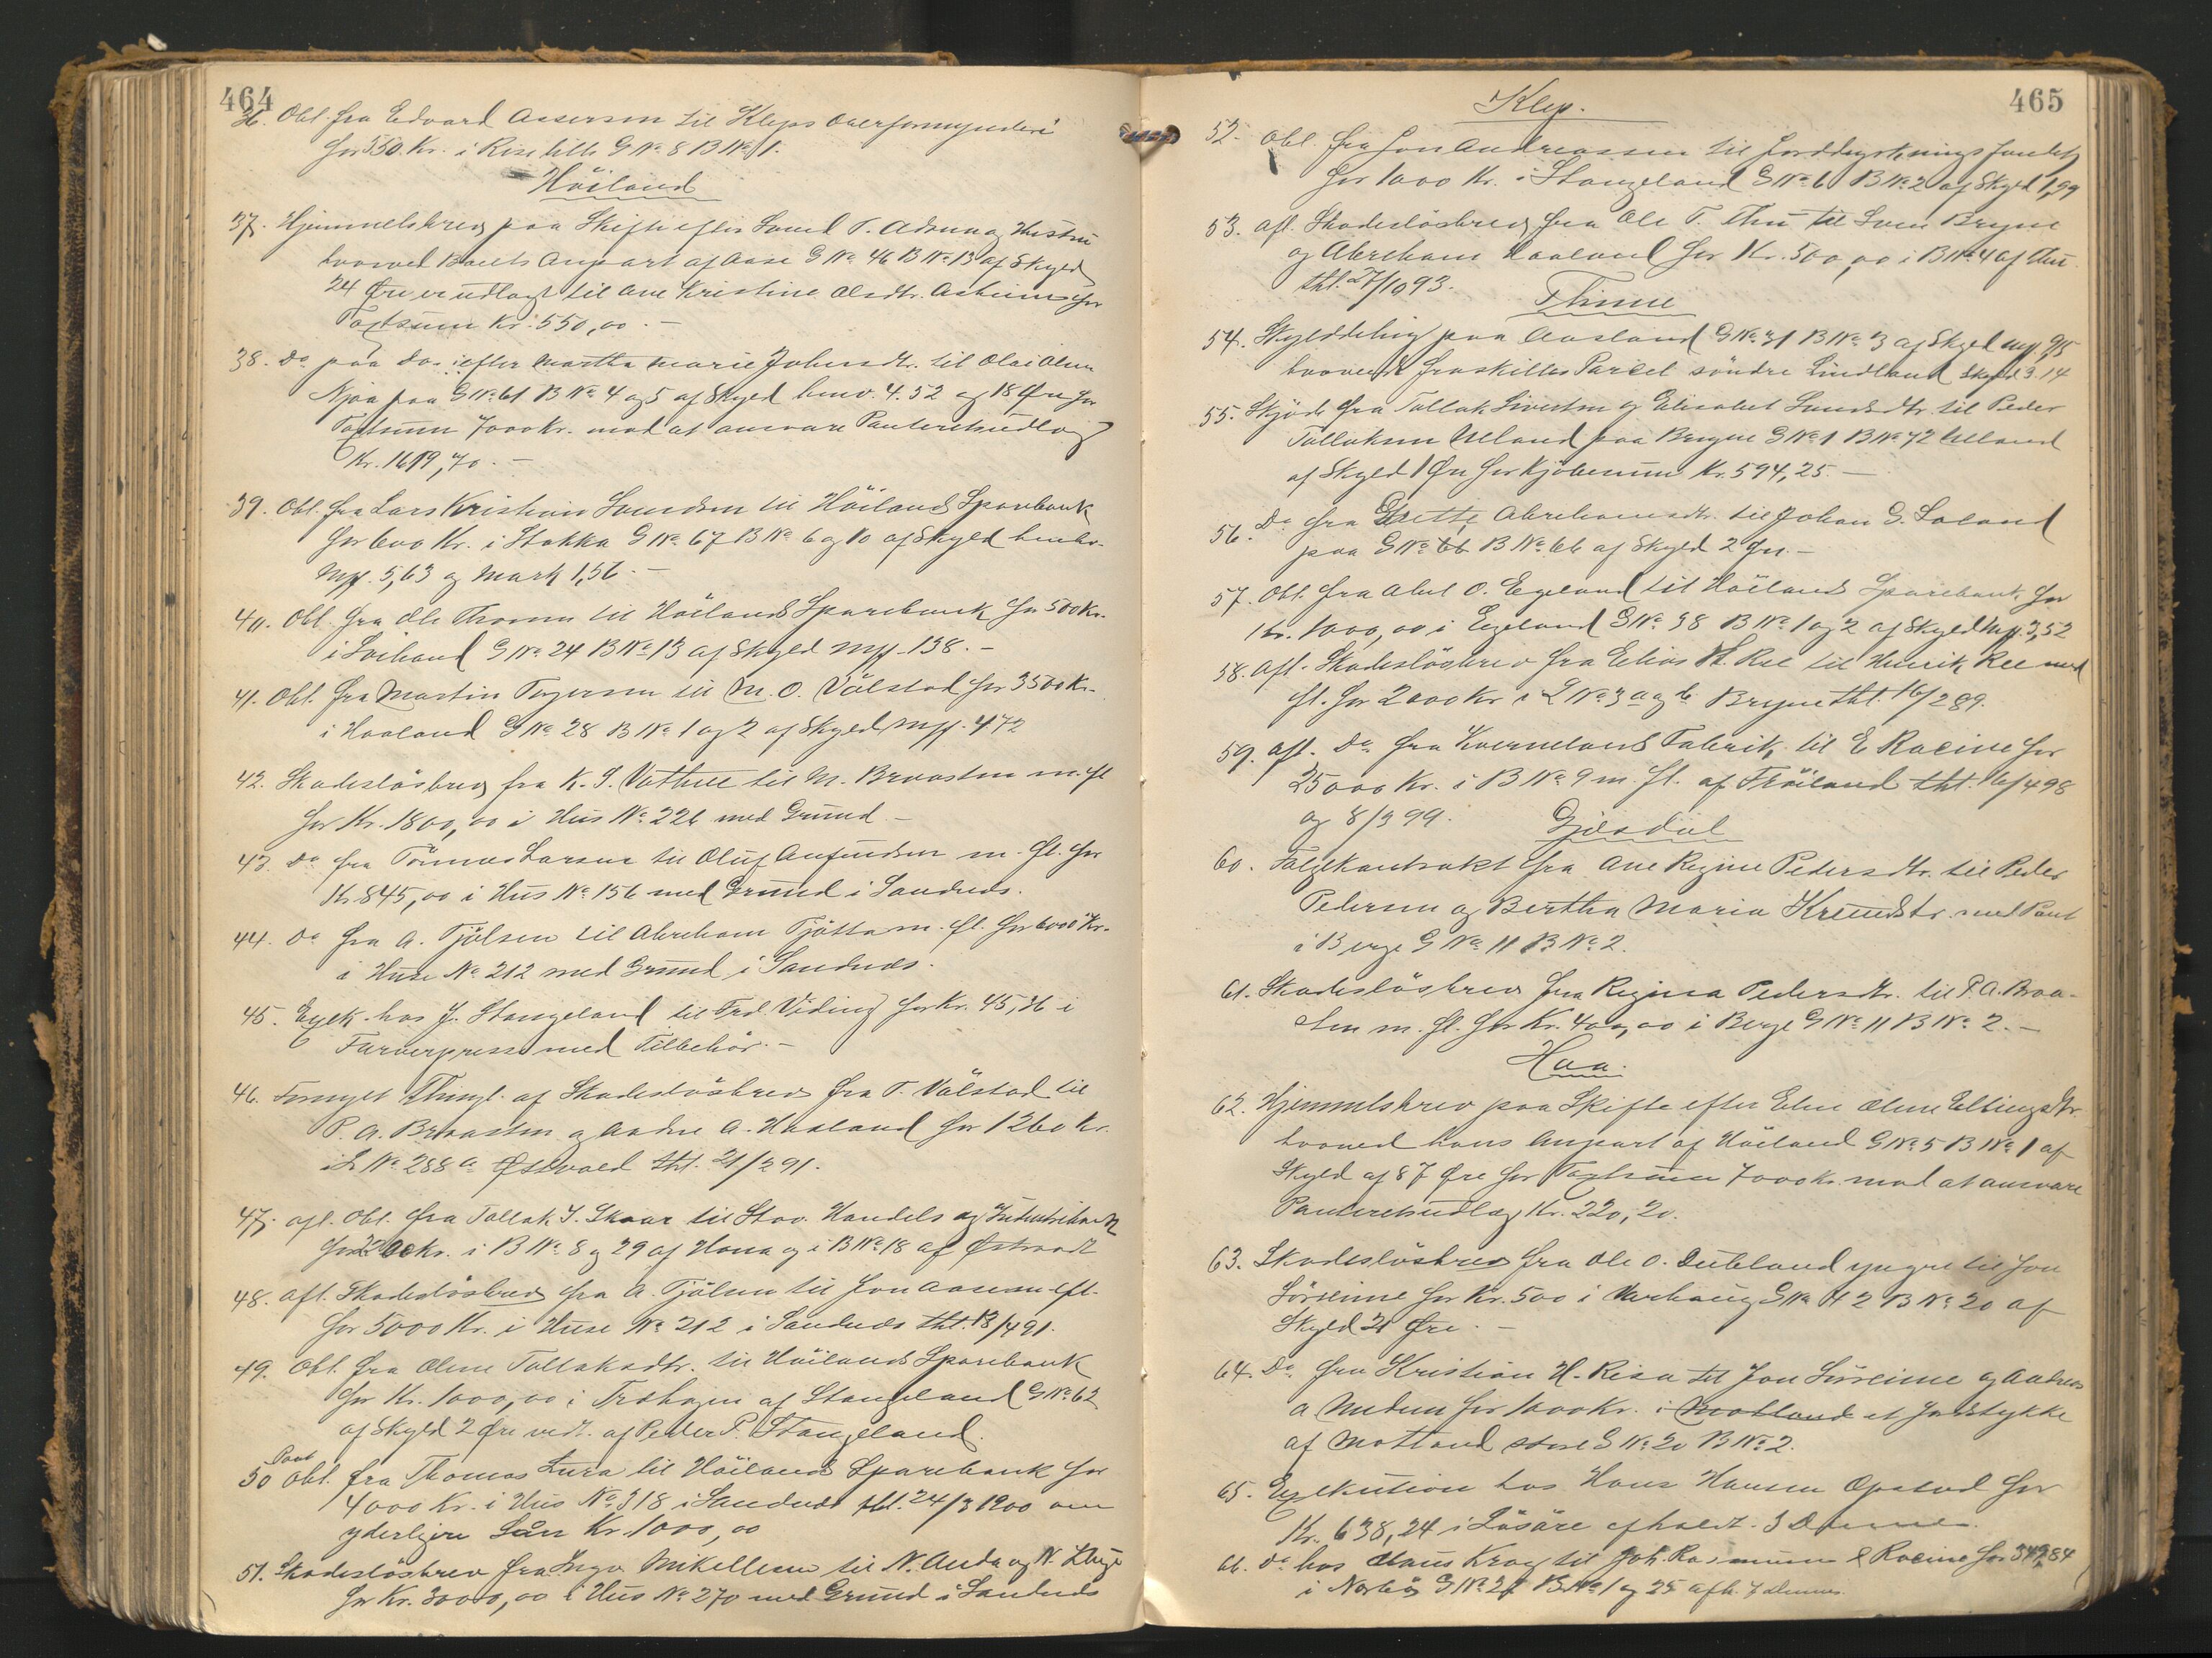 464
36. Obl. fra Edvard Asserson til Kleps Overformynderi
for 550. Kr. i Risetille G No. 8 B No. 1.
Höiland
37. Hjemmelsbrev paa Skifte efter Svend T. Adsen og Hustru
hvorved Boets Anpart af Aase G No. 46 B No. 13 af Skyld
24 Øre er udlagt til Ane Kristine Olsdtr. Asheim for
Taxtsum Kr. 550,00. —
38. Do. paa do. efter Martha Marie Johnsdtr. til Olai Olsen
Njaa paa G No. 61 B No. 4 og 5 af Skyld henv. 4.52 og 18 Øre for
Taxtsum 7000 Kr. mod at ansvare Panteretsudlæg
Kr. 1619,70. —
39. Obl. fra Lars Kristian Svendsen til Höilands Sparebank
for 600 Kr. i Stokka G No. 67 B No. 6 og 10 af Skyld henhv.
Mpf. 5,63 og Mark 1,56. —
40. Obl. fra Ole Thorsen til Höilands Sparebank for 500 Kr.
i Sviland G No. 24 B No. 13 af Skyld Mpf. 138. —
41. Obl. fra Martin Torgersen til M. O. Välstad for 3500 Kr.
i Haaland G No. 28 B No. 1 og 2 af Skyld Mpf. 4 72
42. Skadeslösbrev fra K. S. Vathne til M. Braasten m. fl
for Kr. 1800,00 i Hus No. 226 med Grund. —
43. Do. fra Tönnes Larsen til Oluf Anfindsen m. fl. for
Kr. 845,00 i Hus No. 156 med Grund i Sandnes.
44. Do. fra A. Tjölsen til Abreham Tjötta m. fl. for 6000 Kr.
i Huse No. 212 med Grund i Sandnes.
45. Exek. hos J. Stangeland til Frd. Viding for Kr. 45,36 i
Farverpresse med Tilbehör. —
46. Fornyet Thingl. af Skadeslösbrev fra T. Välstad til
P. A. Braasten og Andre A. Haaland for 1260 Kr.
i L No. 288 a Östvold tht. 21/2 91.
47. afl. Obl. fra Tollak T. Skaar til Stav. Handels og Industribank
for 2200 Kr. i B No. 8 og 29 af Hana og i B No. 18 af Østraadt
48. afl. Skadeslösbrev fra A. Tjölsen til Jon Aasen eft.
for 5000 Kr. i Huse No. 212 i Sandnes tht. 13/4 91.
49. Obl. fra Olene Tollaksdtr. til Höilands Sparebank
for Kr. 1000,00 i Trahagen af Stangeland G No. 62
af Skyld 2 Øre vedt. af Peder P. Stangeland.
Pant
50 Obl. fra Thomas Lura til Höilands Sparebank for
4000 Kr. i Hus No. 318 i Sandnes tht. 24/3 1900 om
yderligere Lån Kr. 1000,00
51. Skadeslösbrev fra Inga Mikelsen til N. Auda og N.
for Kr. 3000,00 i Hus No. 270 med Grund i Sandnes
465
Klep.
52. Obl. fra Jon Andreassen til Jorddyrkningsfondet
for 1000 Kr. i Stangeland G No. 6 B No. 2 af Skyld 1,99
53. afl. Skadeslösbrev fra Ole T. Thu til Sven Bryne
og Abreham Haaland for Kr. 500,00 i B No. 4 af Thu
tht. 27/10 93.
Thime
54. Skylddeling paa Aasland G No. 31 B No. 3 af Skyld Mpf. 9,15
hvorved fraskilles Parcel söndre Lindland Skyld 3.14
55. Skjöde fra Tollak Sivertsen og Elisabet Svendsdtr. til Peder
Tollaksen Ueland paa Bryne G No. 1 B No. 72 Ueland
af Skyld 1 Øre for Kjöbesum Kr. 594,25. —
56. Do. fra Grette Abrehamsdtr. til Johan G. Soland
paa G No. 66 B No. 66 af Skyld 2 Øre. —
57. Obl. fra Abel O. Egeland til Höilands Sparebank for
Kr. 1000,00 i Egeland G No. 38 B No. 1 og 2 af Skyld Mpf. 3,52
58. afl. Skadeslösbrev fra Elias H. Ree til Henrik Ree med
fl. for 2000 Kr i L No. 3 a og b Bryne tht. 16/2 89.
59. afl. Do. fra Kvernelands Fabrik til E. Racine for
25000 Kr. i B No. 9 m. fl. af Fröiland tht. 16/4 98
og 8/3 99.
Gjesdal
60. Folgekontrakt fra Ane Regine Pedersdtr. til Peder
Pedersen og Bertha Maria Knudsdtr. med Pant
i Berge G No. 11 B No. 2.
61. Skadeslösbrev fra Regina Pedersdtr. til P. A. Braa-
sten m. fl. for Kr. 400,00 i Berge G No. 11 B No. 2. —
Haa.
62. Hjemmelsbrev paa Skifte efter Elen Olene Ellingsdtr.
hvorved hans Anpart af Höiland G No. 5 B No. 1 af
Skyld af 87 Øre for Taxtsum 7000 Kr. mod at ansvare
Panteretsudlæg Kr. 220,20.
63. Skadeslösbrev fra Ole O. Dubland yngre til Jon
Sörreime for Kr. 500 i Varhaug G No. 42 B No. 20 af
Skyld 21 Øre. —
64. Do. fra Kristian H. Risa til Jon Sörreime og Andreas
A. Nedrem for 1000 Kr. i Motland et Jordstykke
af Motland store G No. 20 B No. 2.
65. Exekution hos Hans Hansen Opstad for
Kr. 638,24 i Lösöre afholdt. 3 D
66. Do. hos Claus Krag til Joh. Rasmusen & Racine for 349,84
i Narbö G No. 27 B No. 1 og 25 afh. 7 dennes.